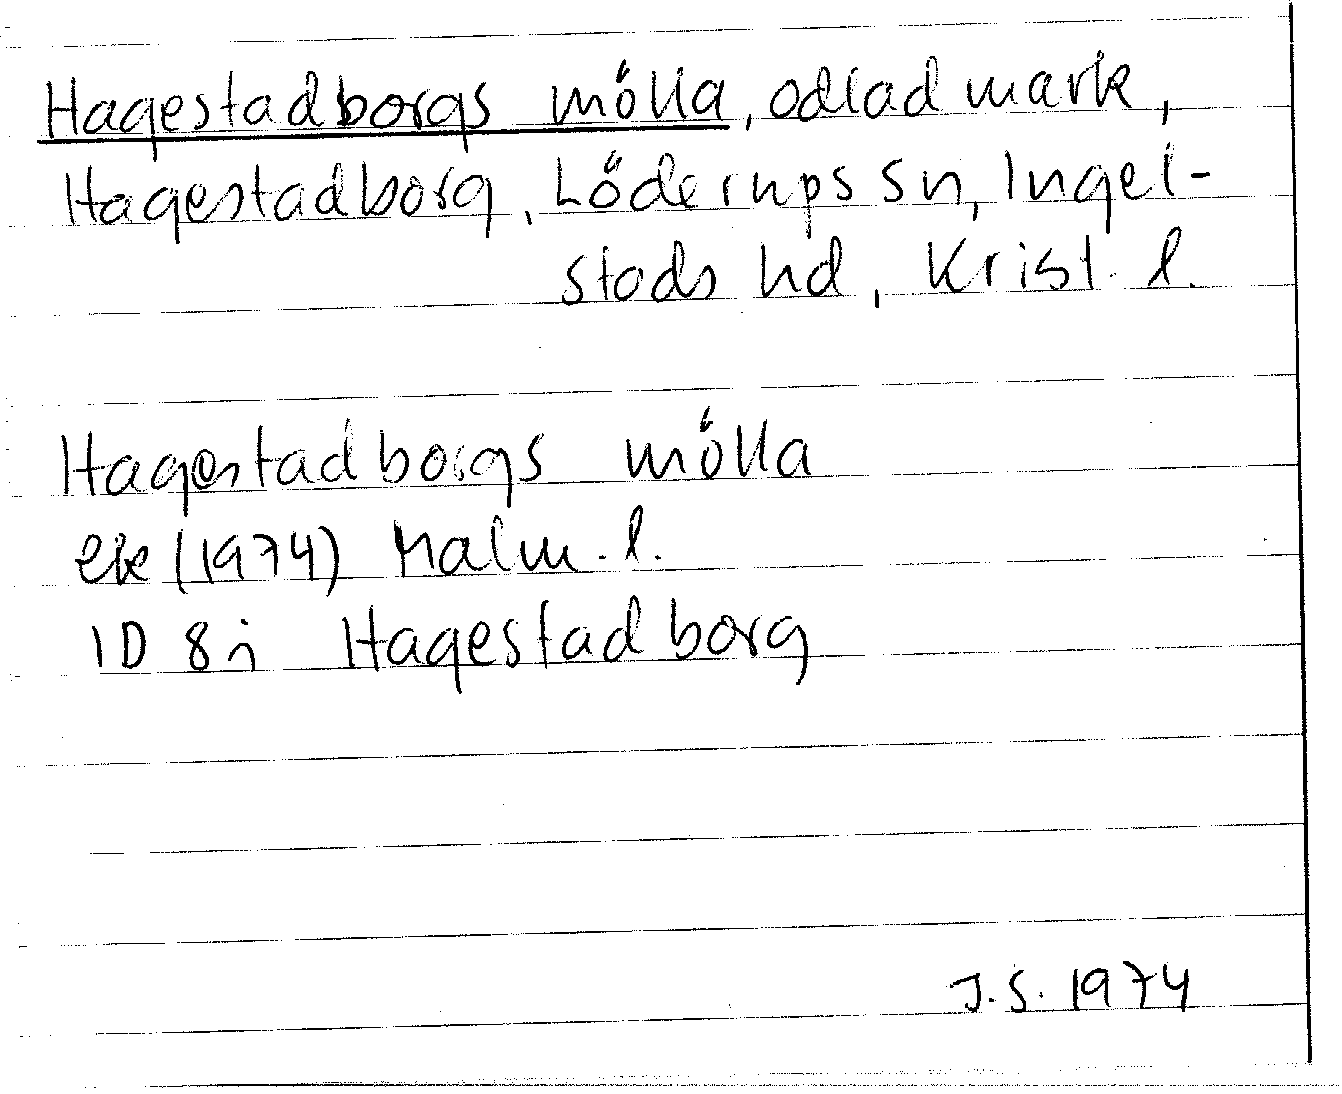 Hagestadborgs mölla, odlad mark,
Hagestadborg, Löderups sn, Ingel-
stads hd, Krist. l.
Hagestadborgs mölla
ek (1974) Malm. l.
1D 8i Hagestadborg
J.S. 1974